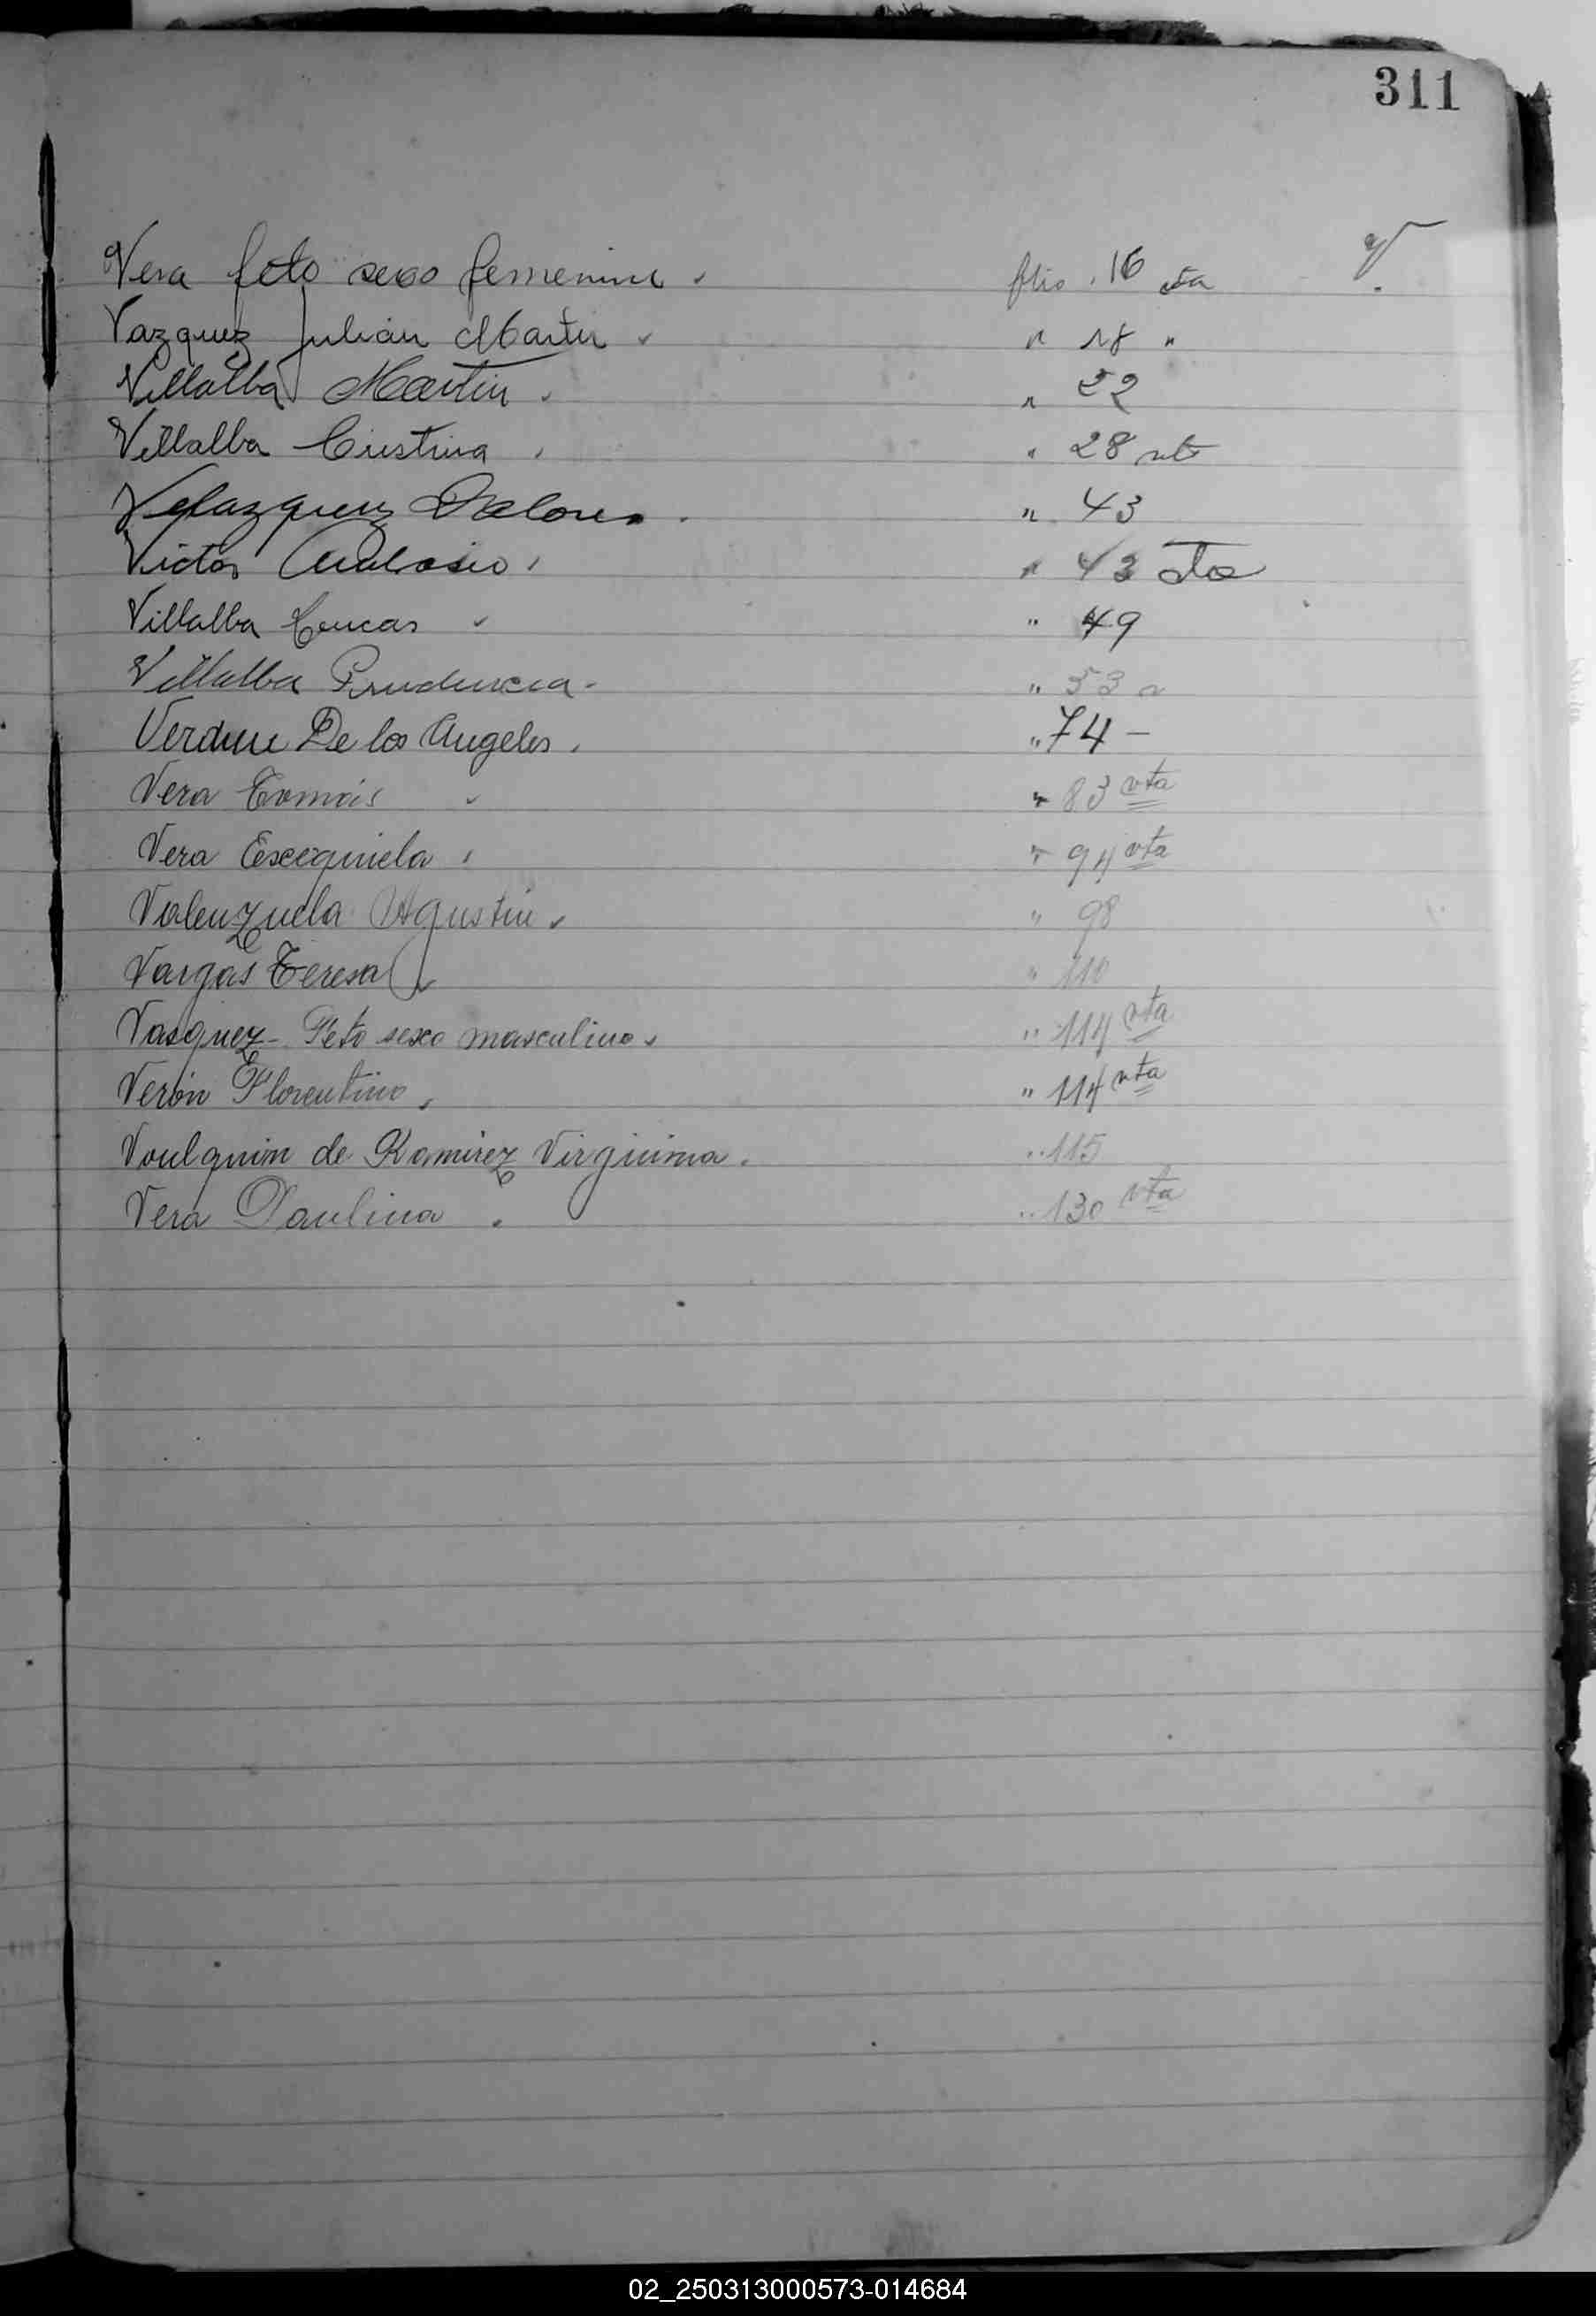 311
V.
Vera feto sexo femenino folio 16 vta
Vazquez Julián Martin " 18 "
Villalba Martin " 22
Villalba Cristina " 28 vta
Velazquez Dolores " 43
Victor " 43 vta
Villalba Lucas " 49
Villalba Prudencia " 53
Verdun De los Angeles " 74 -
Vera Tomás " 83 vta
Vera Exequiela " 94 vta
Valenzuela Agustin " 98
Vargas Teresa " 110
Vasquez - Feto sexo masculino " 114 vta
Verón Florentino " 114 vta
Voulquin de Ramirez Virginia " 115
Vera Paulina " 130 vta
02_250313000573-014684